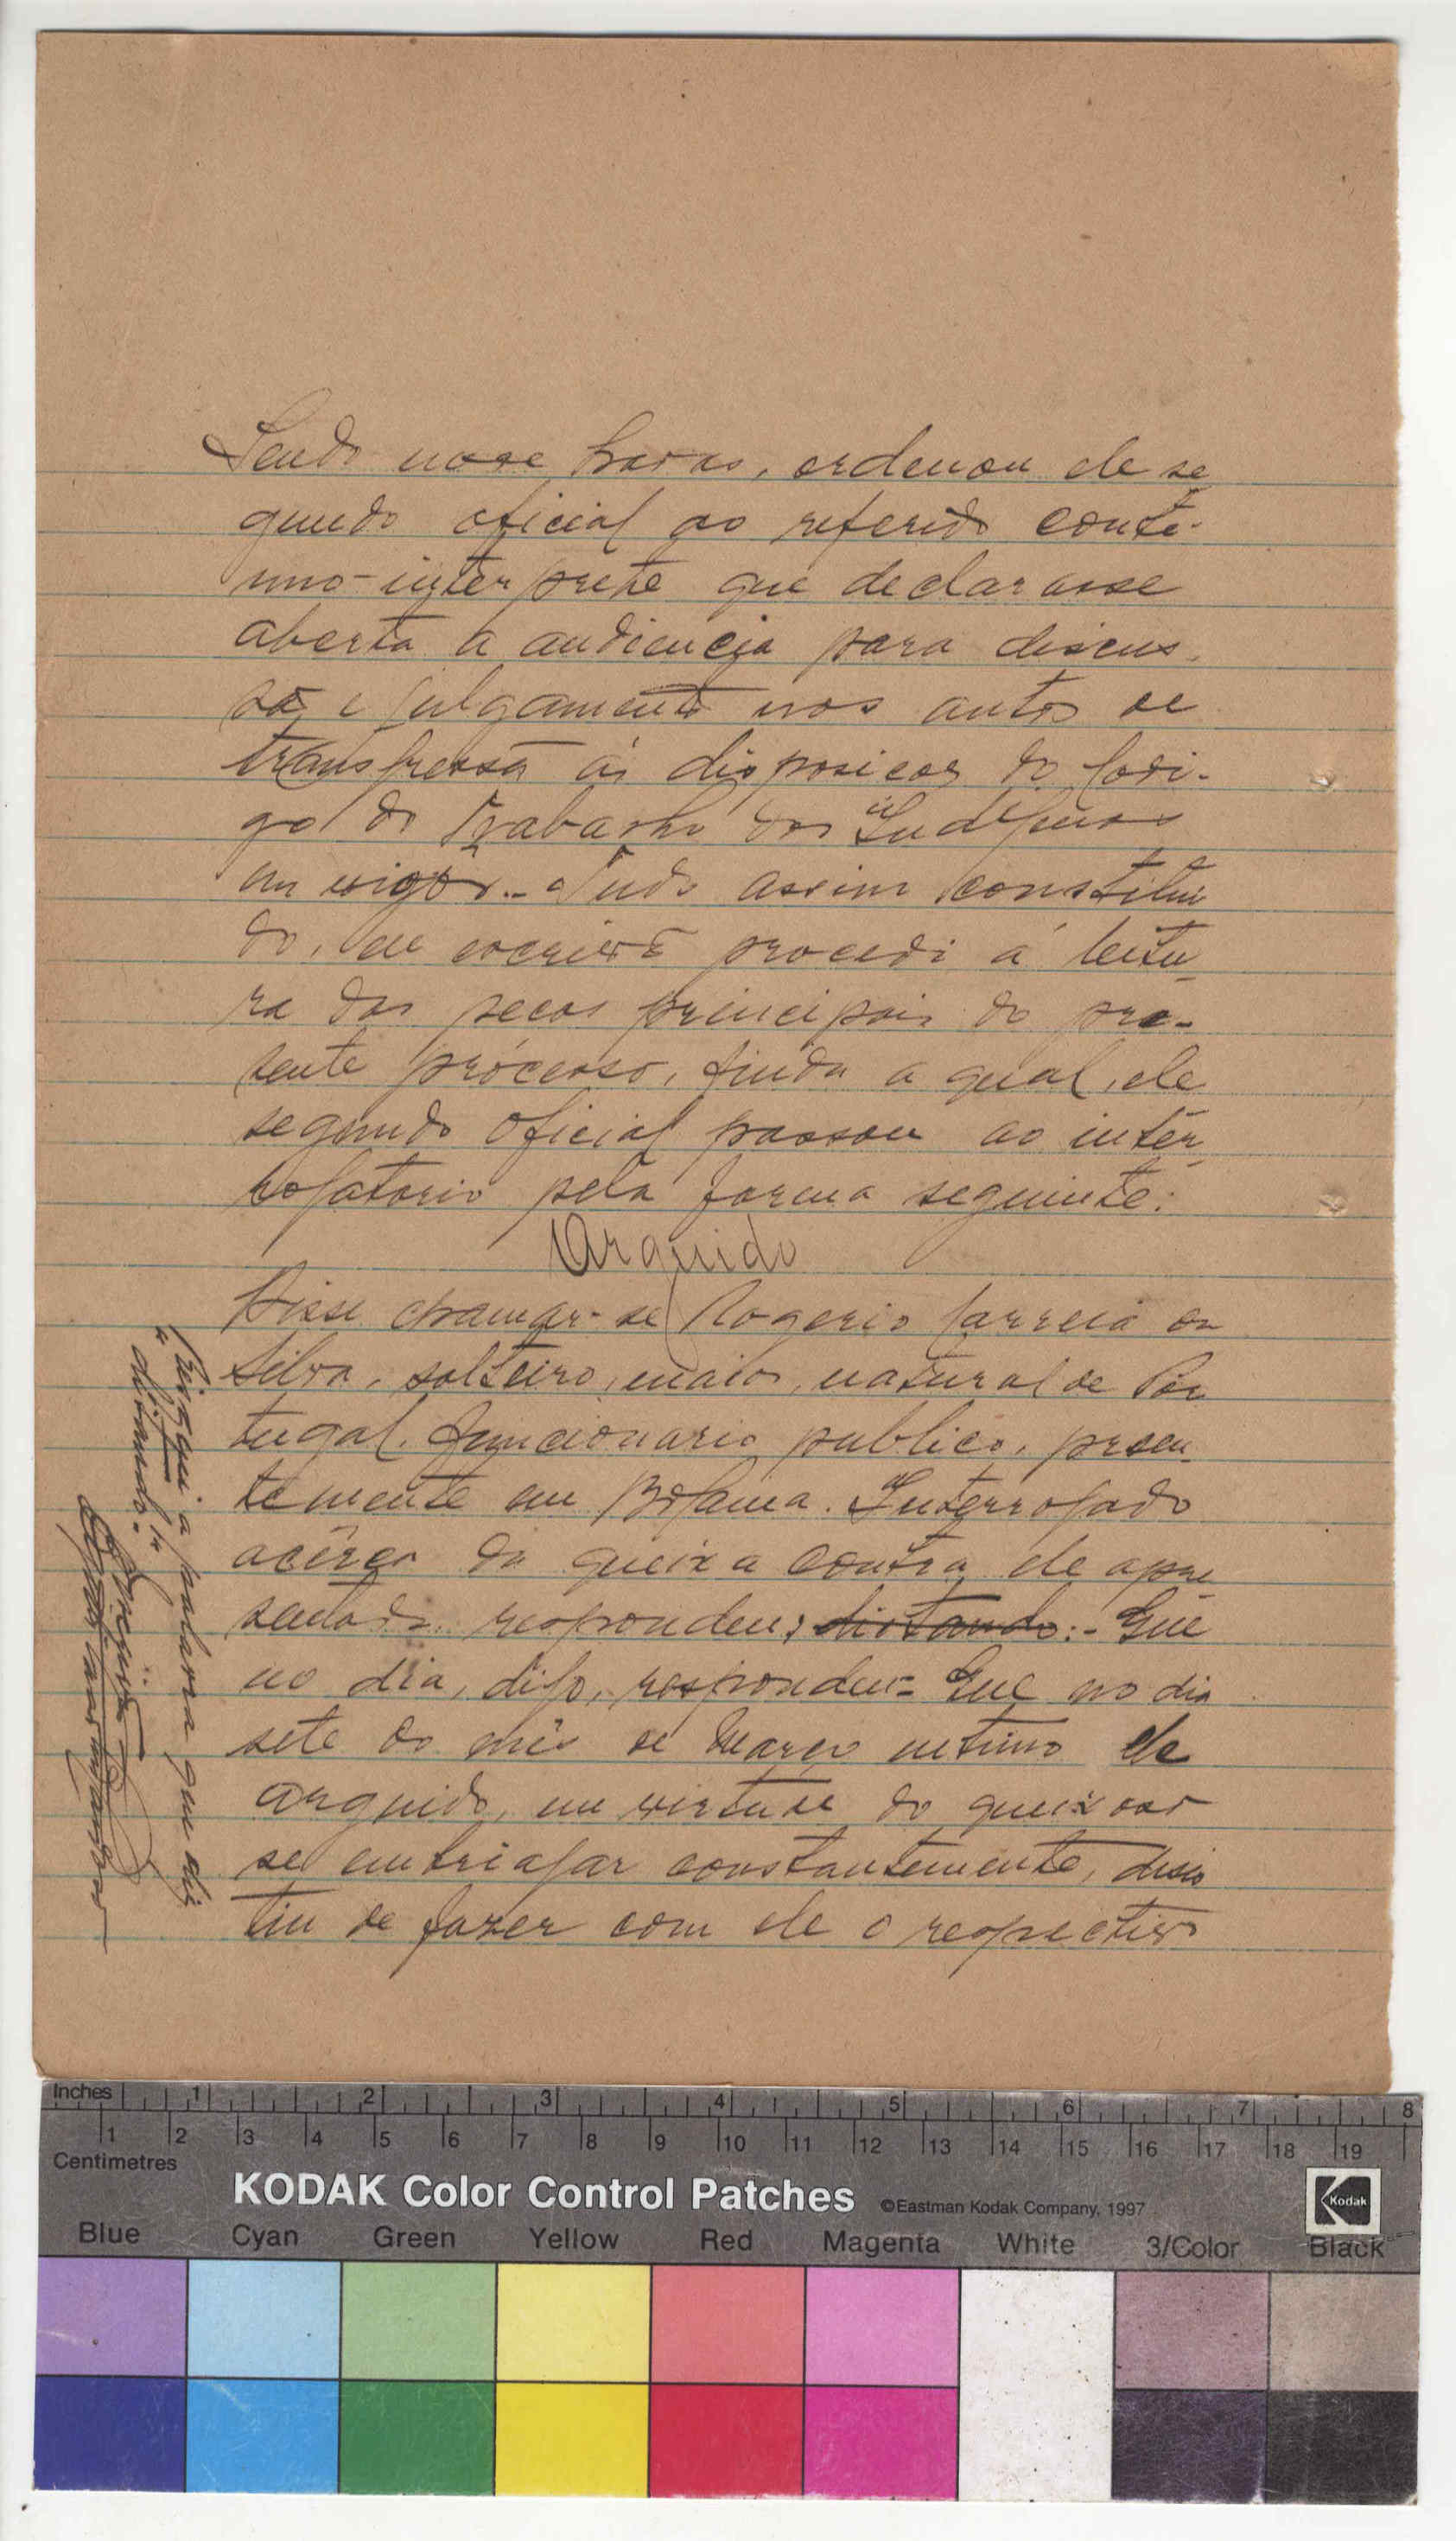 Sendo nove horas, ordenou ele se
gundo oficial ao referido conti-
nuo-interprete que declarasse
aberta a audiencia para discus
sã e julgamento nos autos de
transgressã ás disposicoes do Codi-
go do Trabalho dos Indigenas
em vigor.. Tudo assim constitui
do, eu escrivã procedi á leitu
ra das pecas principais do pre-
sente processo, finda a qual, ele
segundo oficial passou ao inter
rogatorio pela forma seguinte:
Arguido
Disse chamar-se Rogerio Correia da
Silva, solteiro, maior, natural de Por
tugal, funcionario publico, presen
temente em Bolama. Interrogado
acêrca da queixa contra ele apre
sentada respondeu; distando:- Que
no dia, digo, respondeu= Que no dia
sete do mês de Março ultimo ele
arguido, em virtude do queixoso
se embriagar constantemente, desis
tiu de fazer com ele o respectivo
Risquei a palavra que diz
"distando"
Inches 1 2 3 4 5 6 7 8
1 2 3 4 5 6 7 8 9 10 11 12 13 14 15 16 17 18 19
Centimetres
KODAK Color Control Patches ©Eastman Kodak Company, 1997 Kodak
Blue Cyan Green Yellow Red Magenta White 3/Color Black